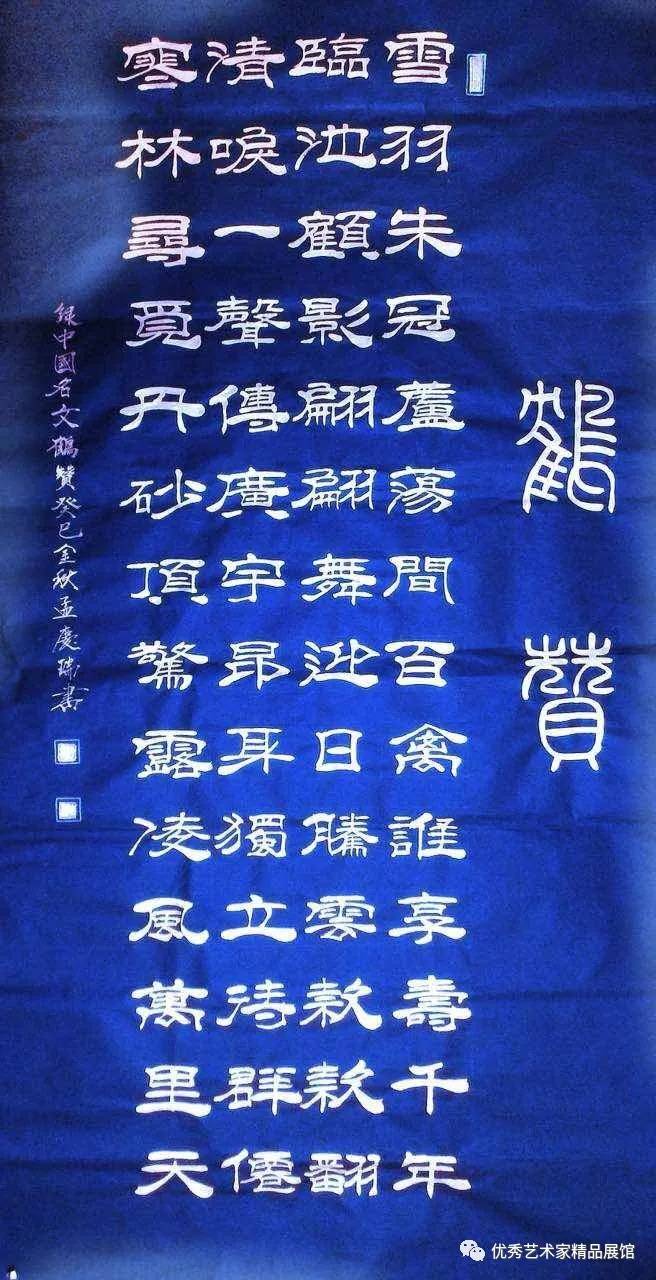 鶴贊
雪羽朱冠蘆蕩間百禽誰享壽千年
臨池顧影翩翩舞迎日騰雲款款翻
清唳一聲傳廣宇昂耳獨立待群僊
寒林尋覓丹砂頂驚露凌風萬里天
録中國名文鶴贊癸巳金秋孟慶瑞書
优秀艺术家精品展馆